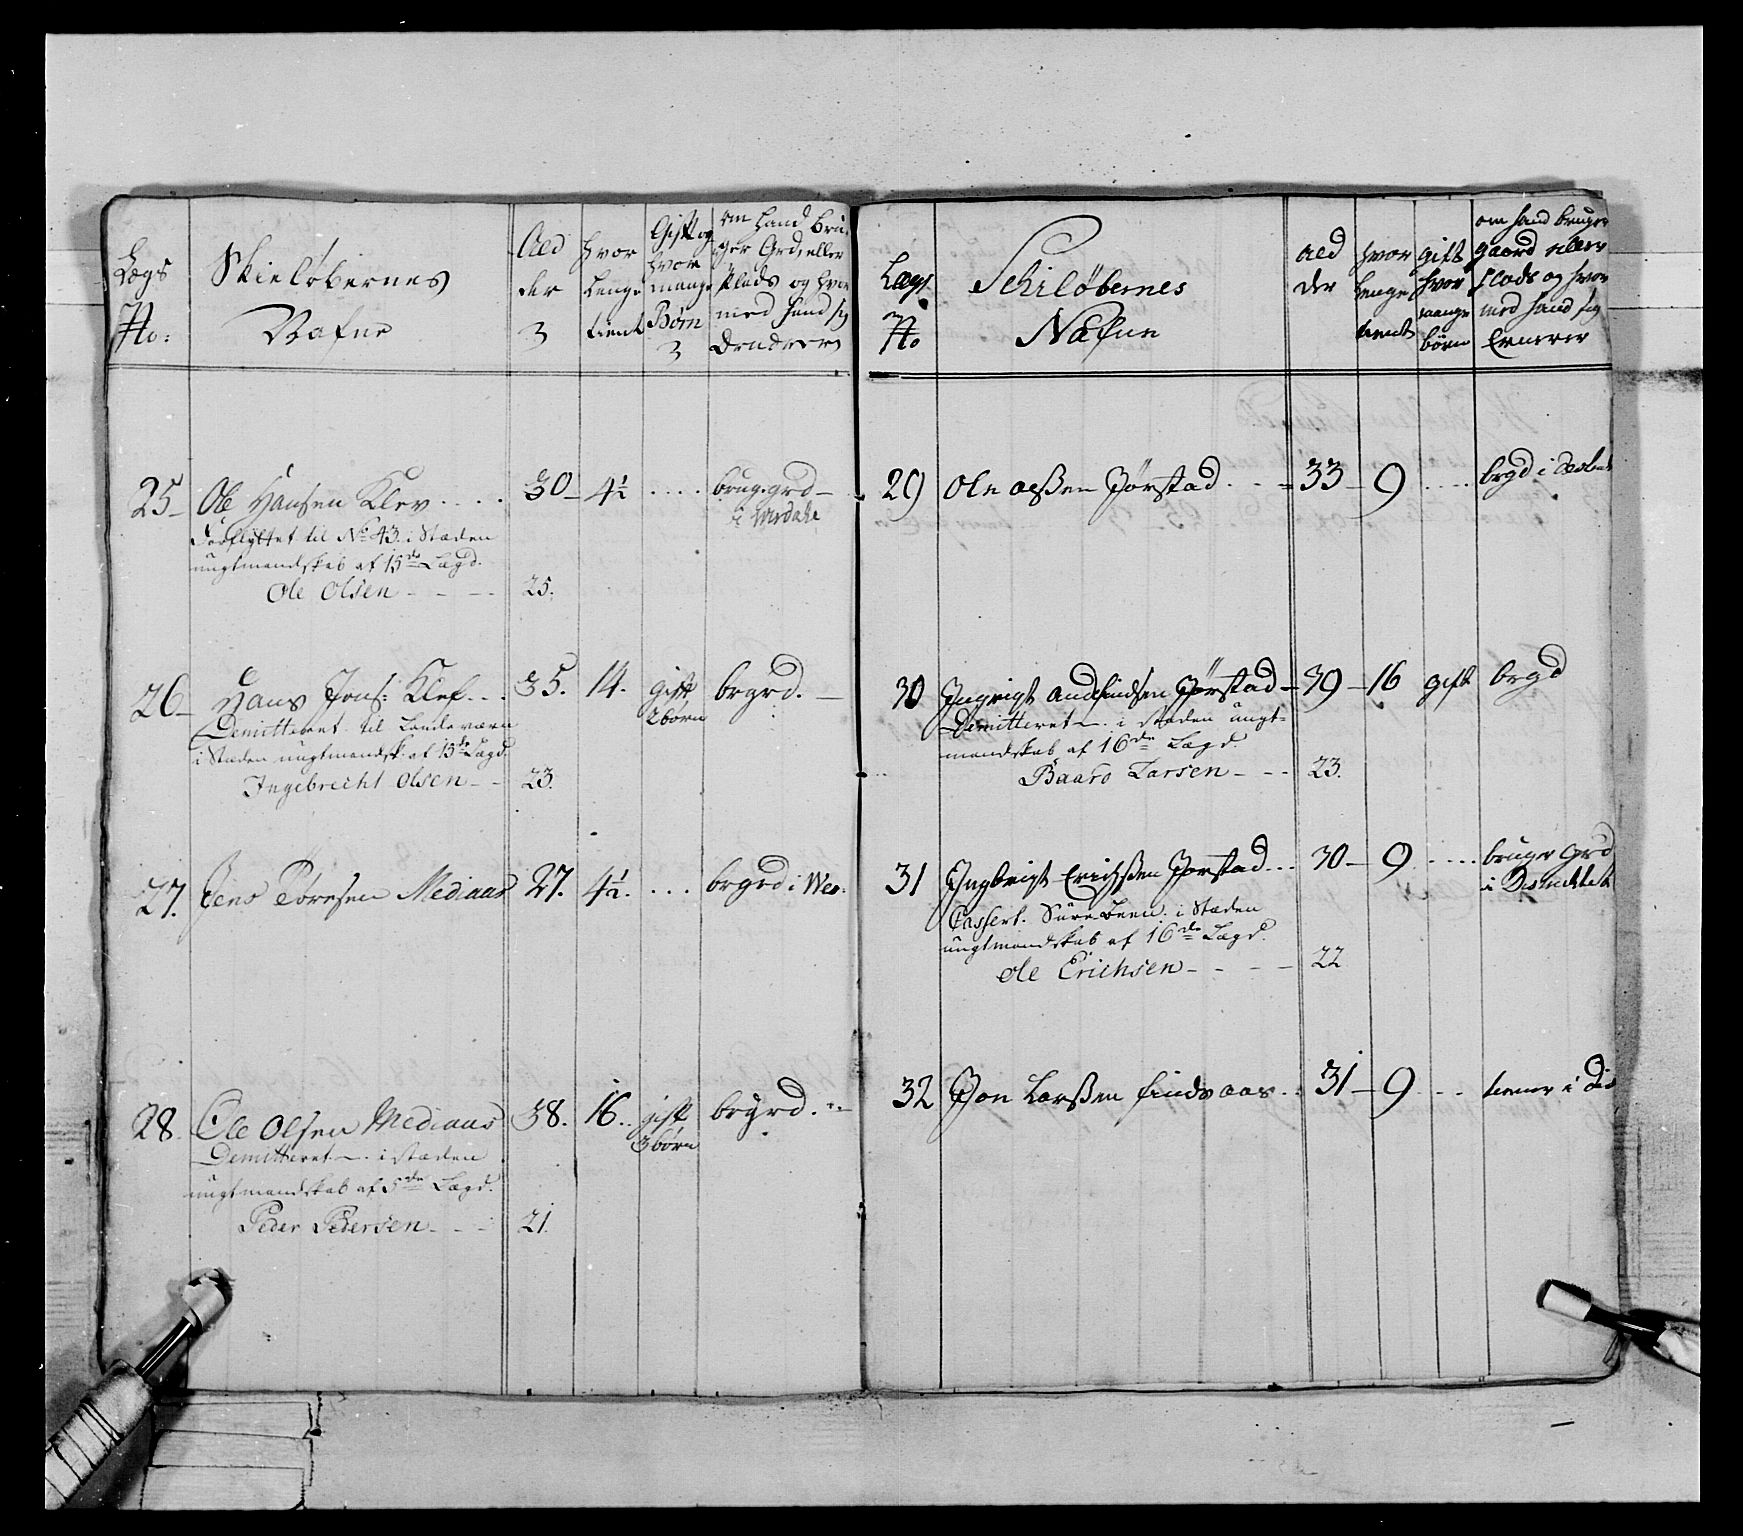 Lægs
No:
Skieløbernes
Nafne
Ald
der
hvor
Lenge
tient
Gift og
hvor
mange
Børn
om Hand bru
ger Grd eller
Plads og hvor
med hand sig
25 Ole Hansen Klev 30 4½ brug. grd
i Werdahl
Forflyttet til No 43. i Stæden
ungtmandskab af 15de Lægd.
Ole Olsen 25.
26 Hans Jons: Klef 35. 14. gift brgrd.
2 børn
Demitteret til Landeværn
i Stæden ungtmandsk. af 15de Lægd
Ingebrecht Olsen 23.
27. Jens Toresen Mediaas 27. 4½ brgrd i Wer.
28. Ole Olsen Mediaas 38. 16. gift brgrd.
3 børn
Demitteret i stæden
ungtmandskab af 5de Lægd.
Peder Pedersen 21.
Lægs
No
Schiløbernes
Nafun
ald
der
hvor
lenge
tient
gift
hvor
mange
børn
om hand bruger
gaard eller
plads og hvor
med hand sig
Ernerer
29 Ole Olßen Jørstad 33 9 brgd i
30 Ingrigt Andfindsen Jørstad 39 16 gift brgd
Demitteret i stæden ungt-
mandskab af 16de Lægd.
Baaro Larsen 23.
31 Ingbrigt Erichßen Jorstad 30 9 bruger grd
i Disticktet
Cassert. Sure Been. i Stæden
ungtmandskab af 16de Lægd.
Ole Erichsen 22
32 Jon Larßen findsaas 31 9 tiener i Di